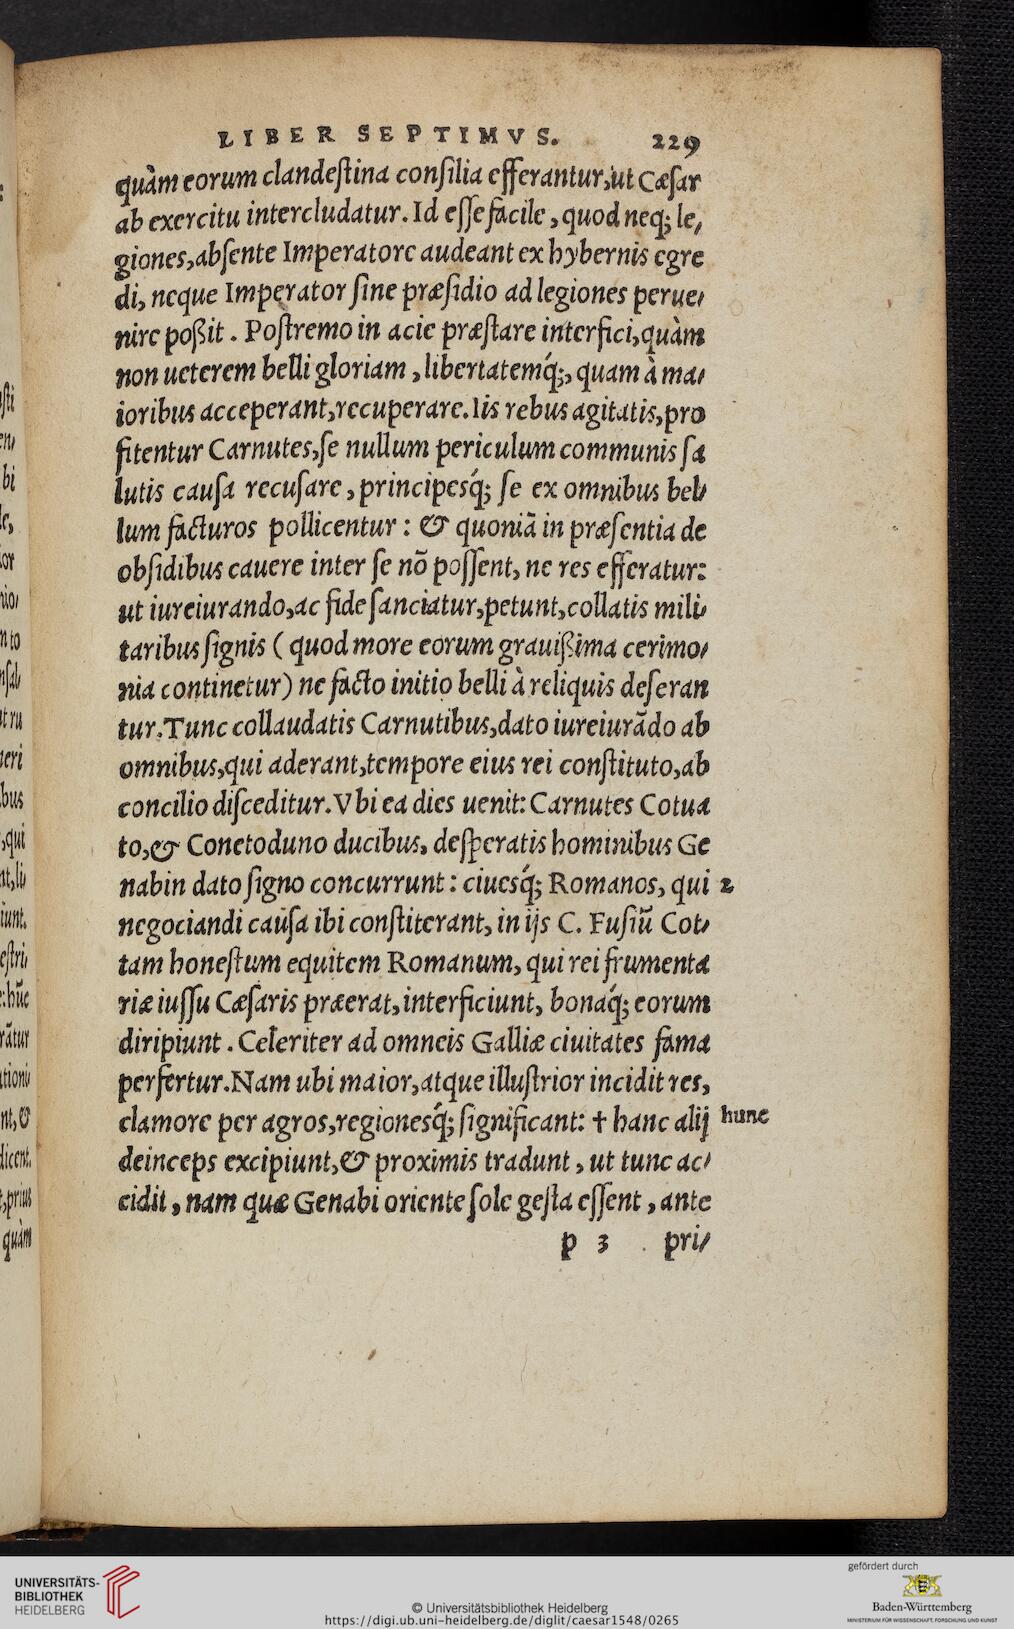 LIBER SEPTIMVS. 229
quàm eorum clandeſtina conſilia efferantur, ut Cæſar
ab exercitu intercludatur. Id eſſe facile, quod neq; le⸗
giones, abſente Imperatore audeant ex hybernis egre
di, neque Imperator ſine præſidio ad legiones perue⸗
nire poßit. Poſtremo in acie præſtare interfici, quàm
non ueterem belli gloriam, libertatemq́;, quam à ma⸗
ioribus acceperant, recuperare. Iis rebus agitatis, pro
fitentur Carnutes, ſe nullum periculum communis ſa
lutis cauſa recuſare, principesq́; ſe ex omnibus bel⸗
lum facturos pollicentur: & quoniã in præſentia de
obſidibus cauere inter ſe nõ poſſent, ne res efferatur:
ut iureiurando, ac fide ſanciatur, petunt, collatis mili⸗
taribus ſignis ( quod more eorum grauißima cerimo⸗
nia continetur) ne facto initio belli à reliquis deſeran
tur. Tunc collaudatis Carnutibus, dato iureiurãdo ab
omnibus, qui aderant, tempore eius rei conſtituto, ab
concilio diſceditur. Vbi ea dies uenit: Carnutes Cotua
to, & Conetoduno ducibus, deſperatis hominibus Ge
nabin dato ſigno concurrunt: ciuesq́; Romanos, qui 2
negociandi cauſa ibi conſtiterant, in ijs C. Fuſiũ Cot⸗
tam honeſtum equitem Romanum, qui rei frumenta
riæ iuſſu Cæſaris præerat, interficiunt, bonaq́; eorum
diripiunt. Celeriter ad omneis Galliæ ciuitates fama
perfertur. Nam ubi maior, atque illuſtrior incidit res,
clamore per agros, regionesq́; ſignificant: † hanc alij hunc
deinceps excipiunt, & proximis tradunt, ut tunc ac⸗
cidit, nam quæ Genabi oriente ſole geſta eſſent, ante
p 3 pri⸗
quàm
UNIVERSITÄTS-
BIBLIOTHEK
HEIDELBERG
© Universitätsbibliothek Heidelberg
https://digi.ub.uni-heidelberg.de/diglit/caesar1548/0265
gefördert durch
Baden-Württemberg
MINISTERIUM FÜR WISSENSCHAFT, FORSCHUNG UND KUNST